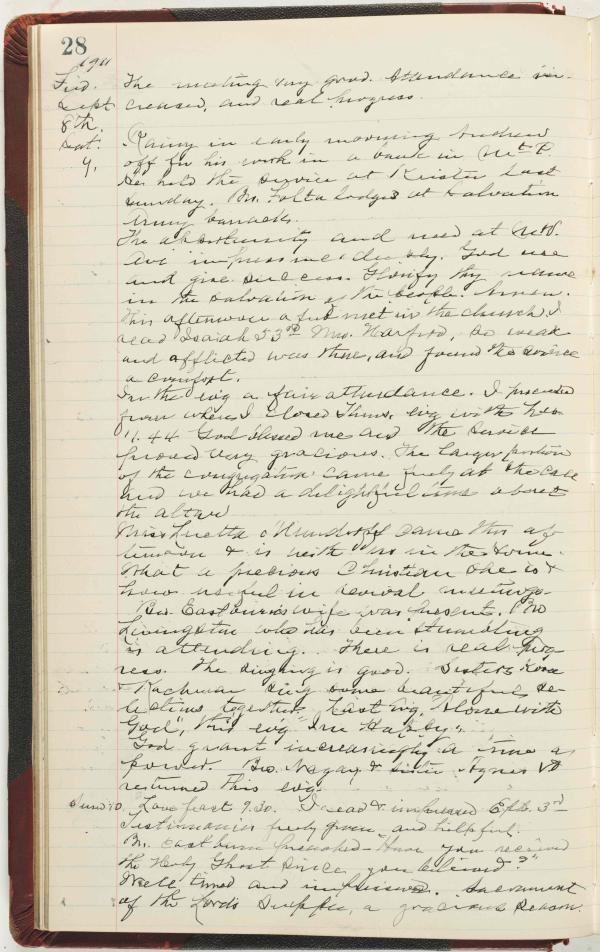 28
1911
Frid. The meeting very good. Attendance in-
Sept creased, and real progress.
8th.
Sat. Rainy in early morning Andrew
9, off for his work in a bank in Mt P.
He held the service at Keister last
Sunday. Bro. Folta lodges at Salvation
Army barracks.
The opportunity and need at
impress me deeply. God use
and give success. Glorify thy name
in the salvation of the people. Amen.
This afternoon a few met in the church I
read Isaiah 53rd Mrs. Harford, so weak
and afflicted was there, and found the service
a comfort.
In the evg a fair attendance. I proceeded
from where I closed Thurs. evg with
11.44 God blessed me and the service
proved very gracious. The larger portion
of the congregation came freely at the call
and we had a delightful time about
the altar
Miss Luetta came this af-
ternoon & is with us in the home.
What a precious Christian she is &
how useful in revival meetings.
Bro. Eastburn's wife was present. Bro
Livingston who has been stumbling
is attending. There is real prog-
ress. The singing is good. Sisters
& sing some beautiful se-
lections together, Last evg, "Alone with
God", this evg "I'm Happy".
God grant increasingly a time of
power. Bro. & sister Agnes
returned this evg.
Sund 10. Love feast 9.30. I read & impressed Eph. 3rd
Testimonies freely given and helpful.
Bro. Eastburn preached - "Have you received
the Holy Ghost since you believed?"
Well timed and impressive. Sacrament
of the Lord's Supper, a gracious season.